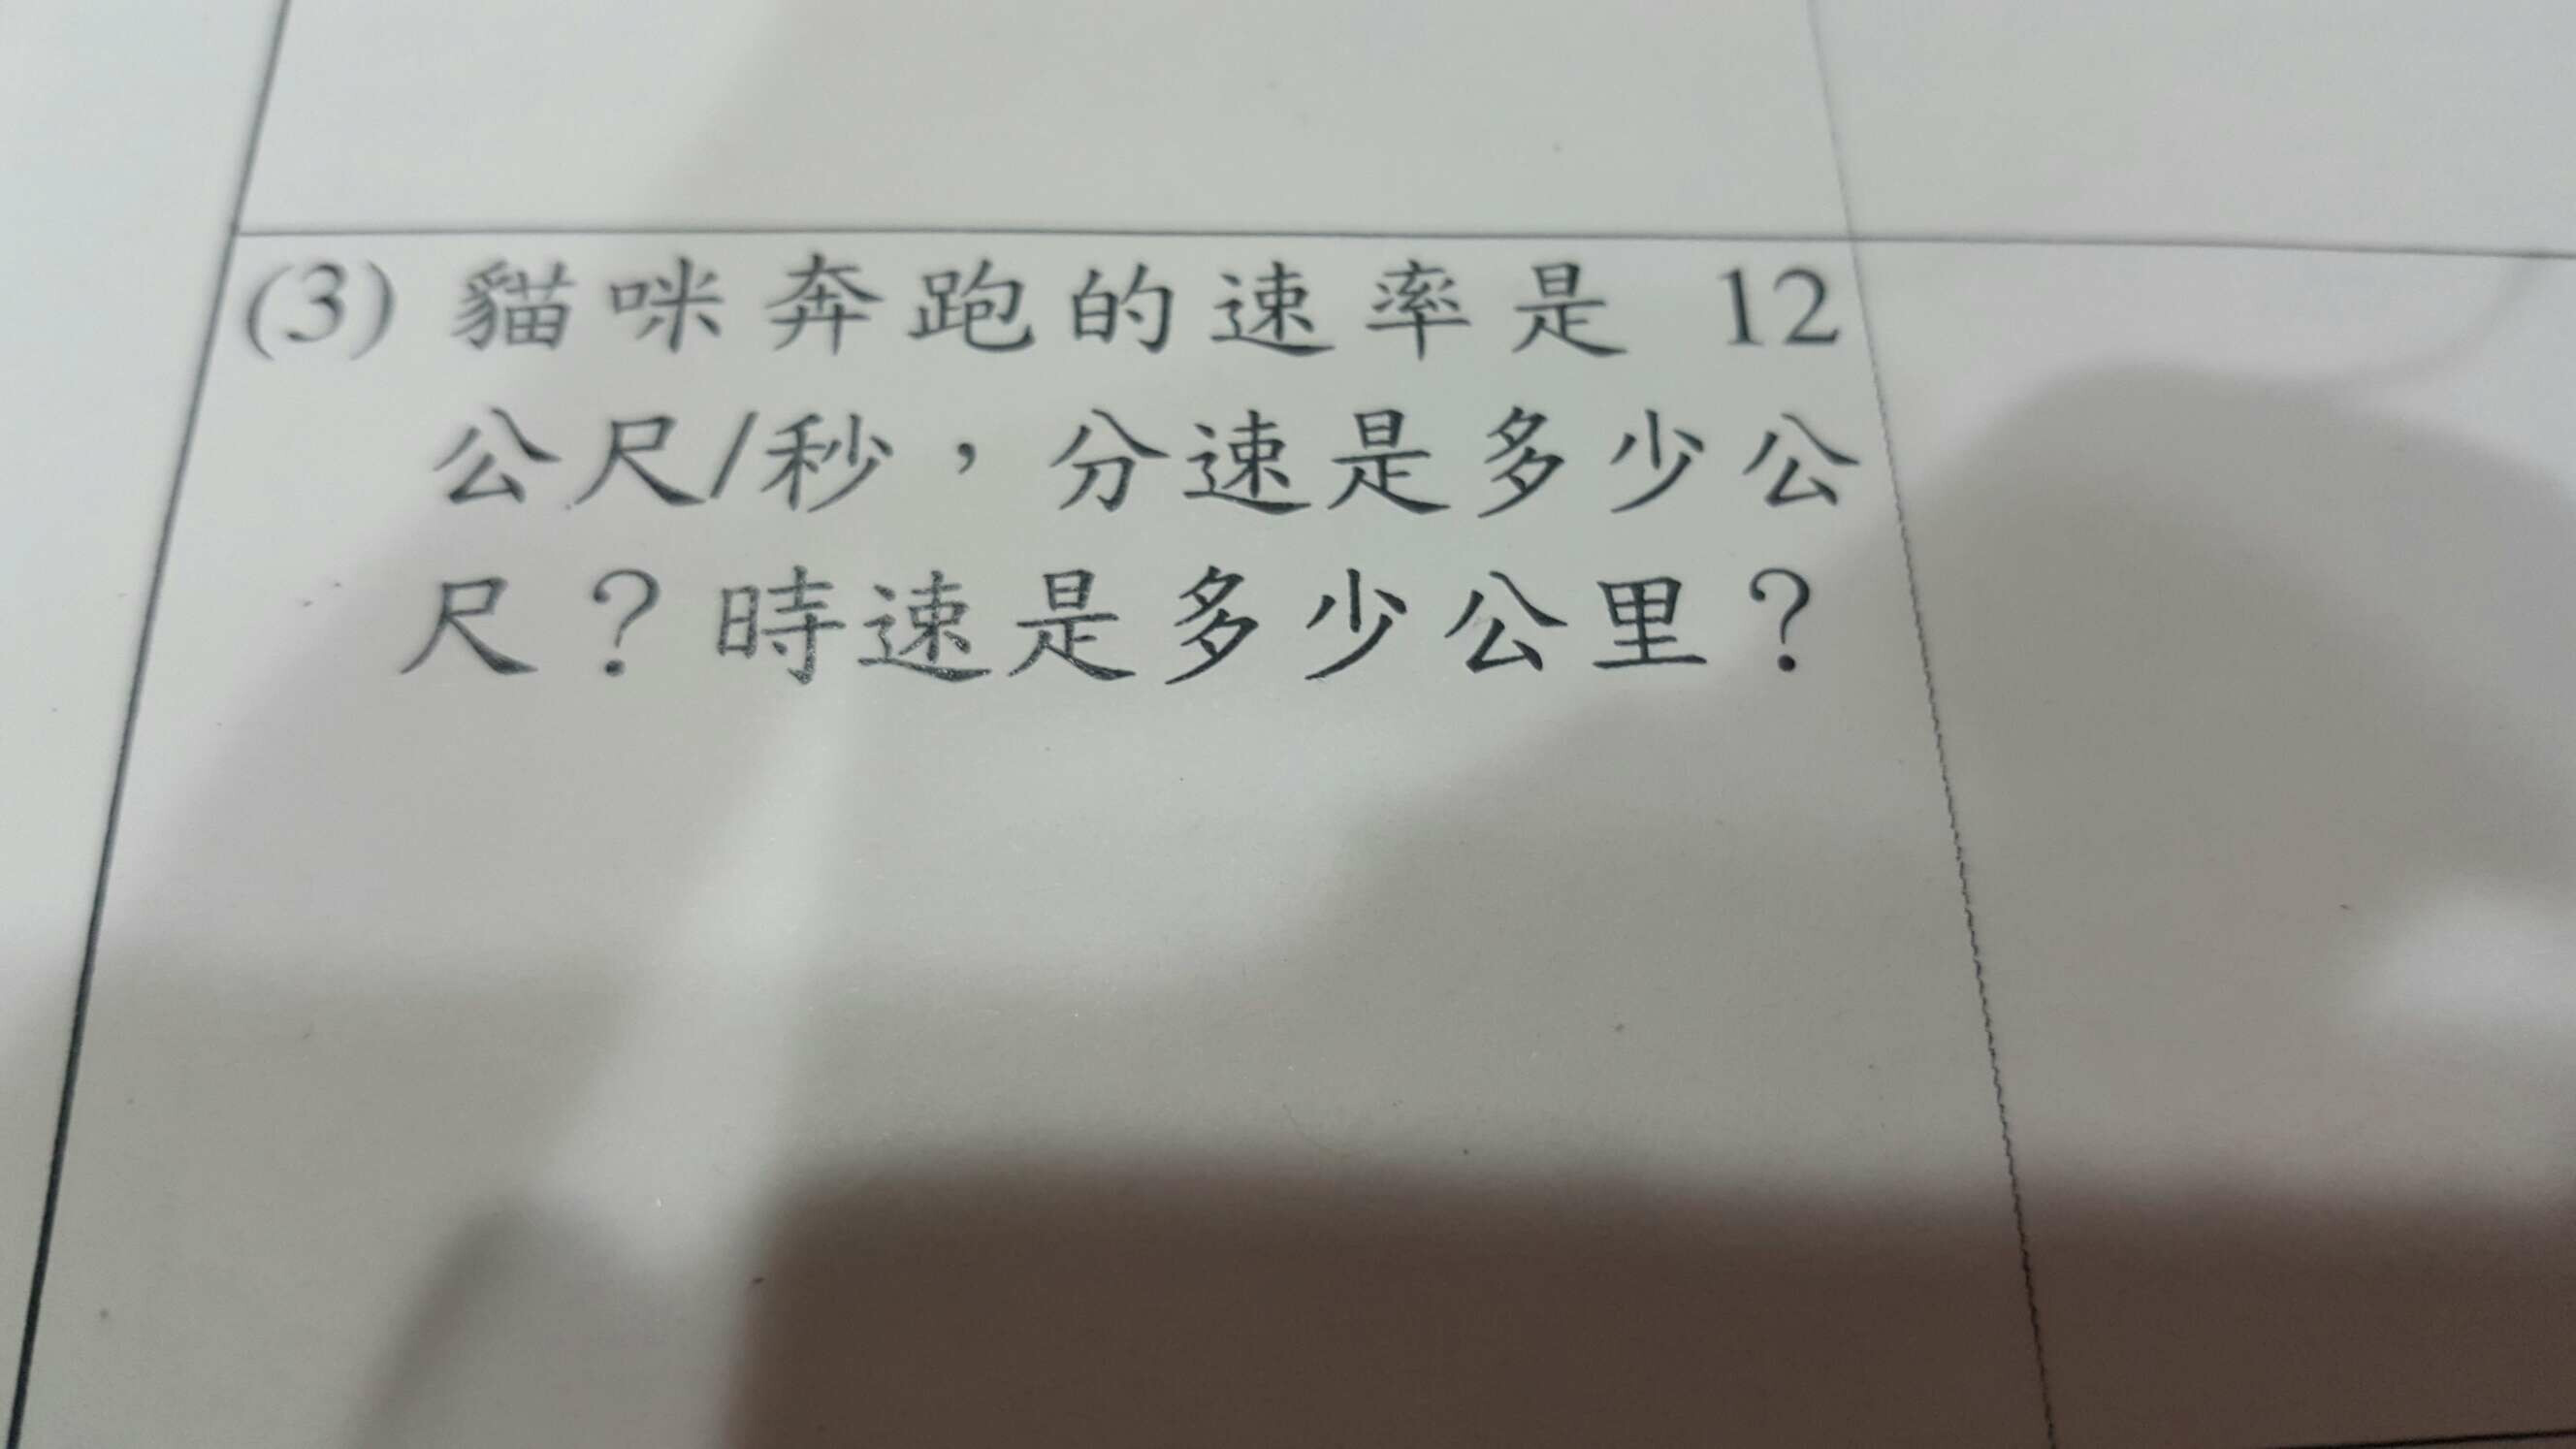 (3) 貓咪奔跑的速率是 12
公尺/秒，分速是多少公
尺？時速是多少公里？